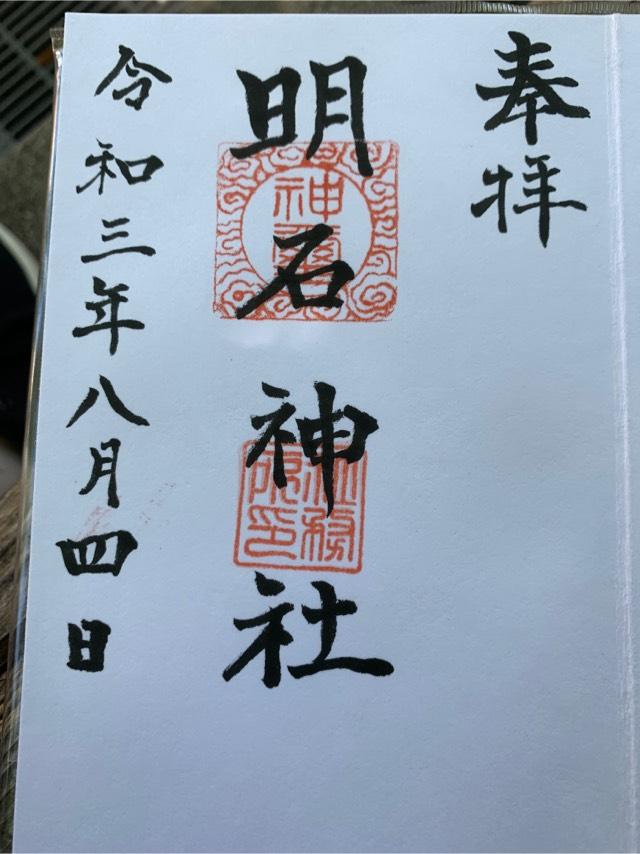 奉拝
明石神社
神璽
社務之印
令和三年八月四日